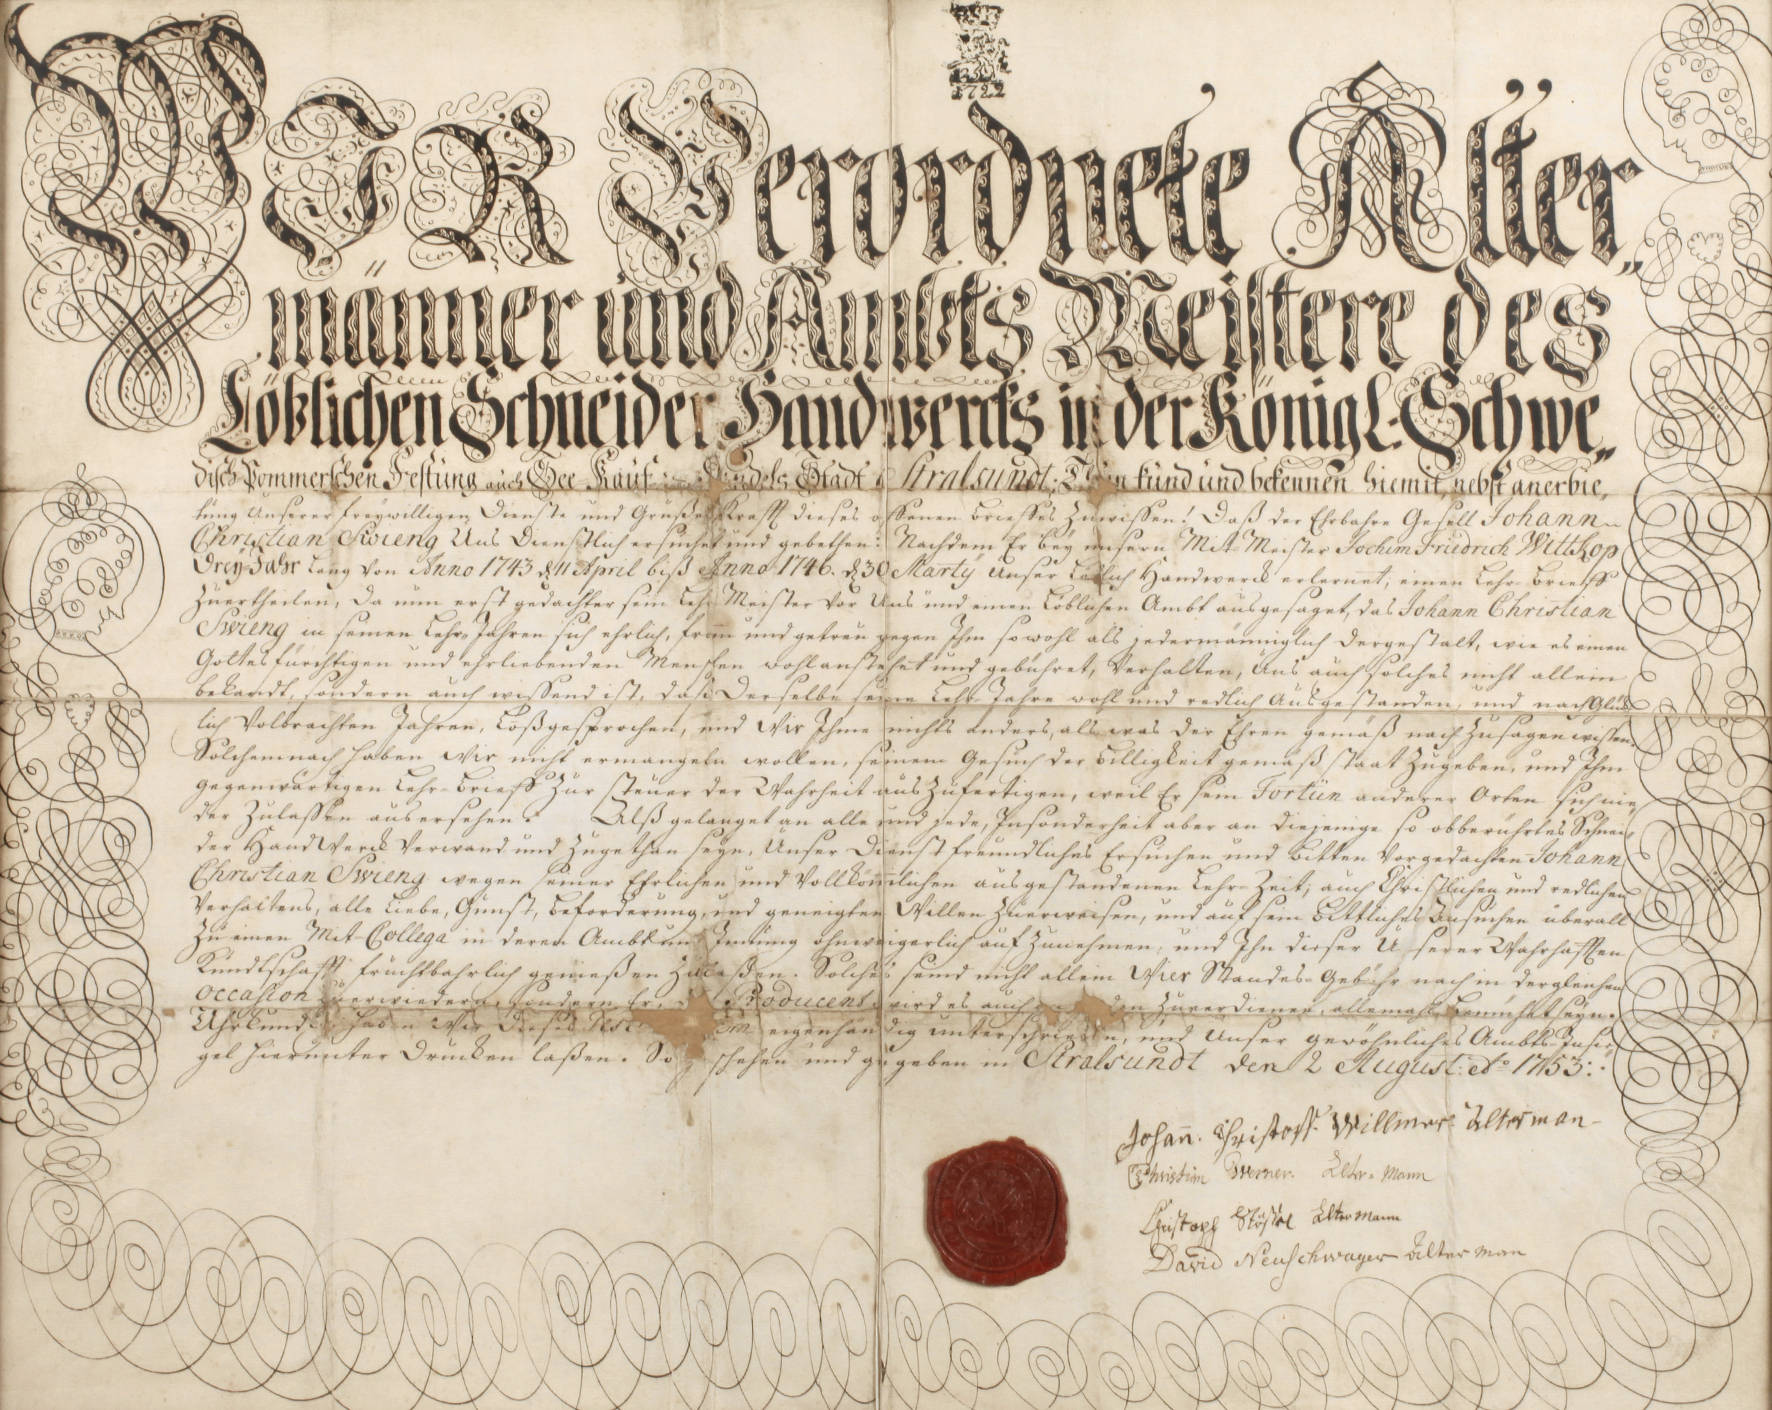 1722
WIR Verordnete Älter„
männer und Ambts Meistere des
Löblichen Schneider Handwercks in der Königl: Schwe„
disch Pommerschen Festung auch See Kauf und Handels Stadt Stralsundt, Thun kund und bekennen hiemit, nebst anerbie„
tung Unserer freywilligen Dienste und Grußes Krafft dieses offenen Brieffes zuwissen! Daß der Ehrbahre Gesell Johann
Christian Swieng Uns Dienstlich ersuchet und gebethen: Nachdem Er bey unsern Mit-Meister Jochim Friedrich Wittkop
Drey Jahr lang von Anno 1743 d 11 April biß Anno 1746. d 30 Marty Unser Löblich Handwerck erlernet, einen Lehr-Brieff
zuertheilen, Da nun erst gedachter sein Lehr Meister vor Uns und einen Löblichen Ambt ausgesaget, das Johann Christian
Swieng in seinen Lehr-Jahren sich ehrlich, from und getreu gegen Ihm sowohl als jedermänniglich dergestalt, wie es einen
Gottesfürchtigen und ehrliebenden Menschen wohl anstehet und gebühret, verhalten, Uns auch solches nicht allein
bekandt, sondern auch wissend ist, daß Derselbe seine Lehr Jahre wohl und redlich ausgestanden, und nach Glück
lich Volbrachten Jahren, Loßgesprochen, und Wir Ihme nichts anders, als was der Ehren gemäß nach zusagen wissen.
Solchemnach haben Wir nicht ermangeln wollen, seinem Gesuch der Billigkeit gemäß staat zugeben, und Ihm
gegenwärtigen Lehr-Brieff zur steuer der Wahrheit auszufertigen, weil Er sein Fortün anderer Orten sich nie„
der zulassen ausersehen. Alß gelanget an alle und jede, Insonderheit aber an diejenige so obberührtes Schnei„
der HandWerck Verwand und zugethan seyn, Unser Dienstfreundliches Ersuchen und Bitten Vorgedachten Johann
Christian Swieng wegen seiner Ehrlichen und Vollkömlichen ausgestandenen Lehr-Zeit, auch Christlichen und redlichen
Verhaltens, alle Liebe, Gunst, Beforderung, und geneigten Willen zuerweisen, und auf sein Bittliches Ansuchen überall
zu einen Mit-Collega in deren Ambt und Innung ohnweigerlich auf zunehmen, und Ihn dieser Unserer Wahrhafften
Kundtschafft fruchtbahrlich genießen zulaßen. Solches seind nicht allein Wier Standes-Gebühr nach in dergleichen
occasion zuerwiedern, sondern Er, Producens wird es auch zuverdienen, allemahl Bemühet seyn.
Uhrkundl. haben Wir dieses eigenhändig unterschrieben, und Unser gewöhnliches Ambts-Insie„
gel hierunter Drucken laßen. So geschehen und gegeben in Stralsundt den 2 August: Ao 1753:
Johann. Christoff. Willmer. Alterman
Christian Werner. Alter-Mann
Christoph Altermann
David Neuschwager Alterman